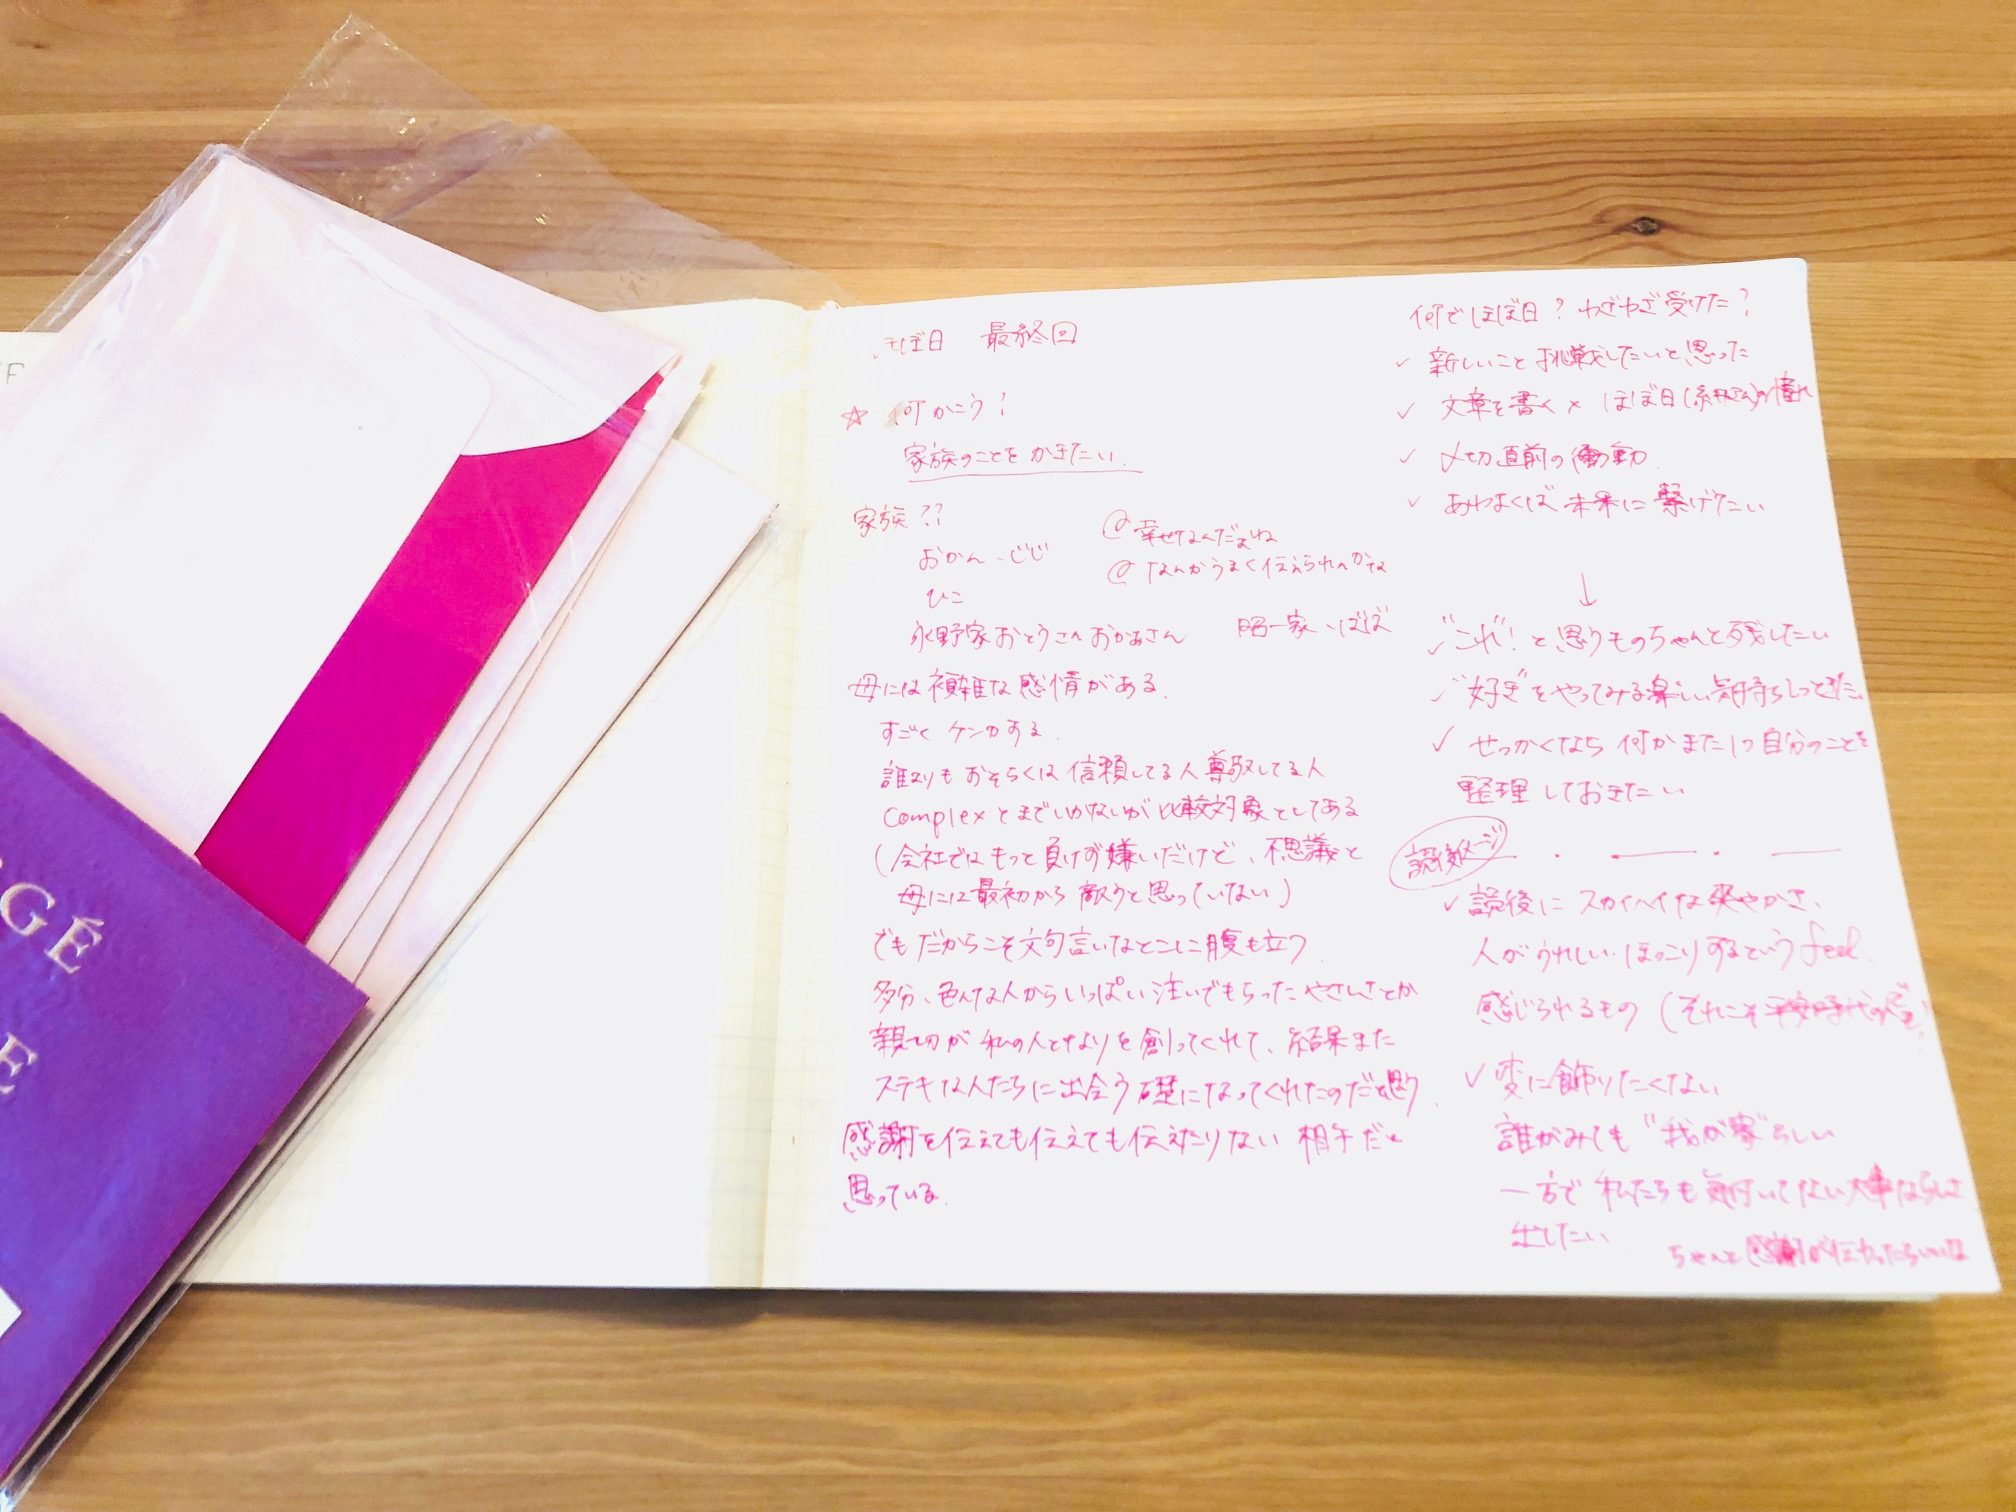 ほぼ日 最終回
☆ 何かこう?
家族のことをかきたい.
家族??
おかん、じじ
ひこ
永野家おとうさんおかあさん 昭一家、ばば
@幸せなんだよね
@なんかうまく伝えられへんかな
母には複雑な感情がある.
すごくケンカする.
誰よりもおそらくは信頼してる人尊敬してる人
Complexとまでいかないが比較対象としてある
(会社ではもっと負けず嫌いだけど、不思議と
母には最初から敵うと思っていない)
でもだからこそ文句言いなとこに腹も立つ.
多分、色んな人からいっぱい注いでもらったやさしさとか
親切が私の人となりを創ってくれて、結果また
ステキな人たちに出会う礎になってくれたのだと思う.
感謝を伝えても伝えても伝えたりない相手だと
思っている.
何でほぼ日?わざわざ受けた?
✓ 新しいこと挑戦したいと思った
✓ 文章を書く × ほぼ日(糸井さん)の憧れ
✓ 〆切直前の衝動.
✓ あわよくば未来に繋げたい
↓
✓ "これ"!と思うものちゃんと残したい
✓ "好き"をやってみる楽しい気持ち
✓ せっかくなら何かまた1つ自分のことを
整理しておきたい
読後イメージ
✓ 読後にスカイハイな爽やかさ、
人がうれしい・ほっこりするというfeel.
感じられるもの(それこそ
✓ 変に飾りたくない
誰がみても"我が家"らしい
一方で私たちも気付いてない
出したい
ちゃんと感謝が伝わったらいいな
GÉ
E